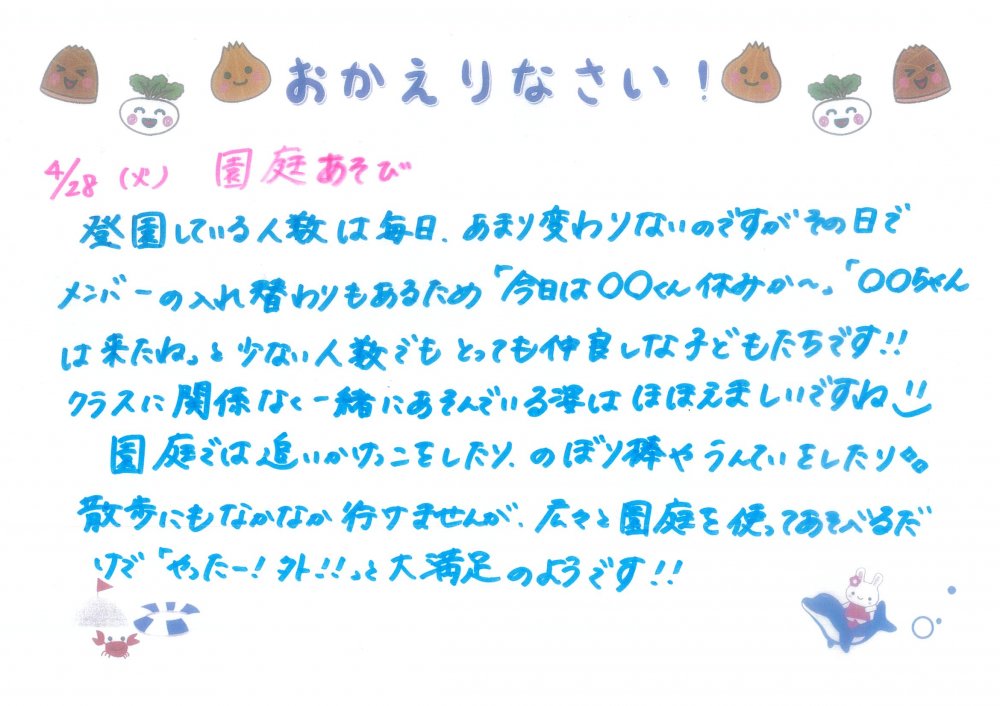 おかえりなさい！
4/28（火） 園庭あそび
登園している人数は毎日、あまり変わりないのですがその日で
メンバーの入れ替わりもあるため「今日は〇〇くん休みか〜」「〇〇ちゃん
は来たね」と少ない人数でもとっても仲良しな子どもたちです!!
クラスに関係なく一緒にあそんでいる姿はほほえましいですね
園庭では追いかけっこをしたり、のぼり棒やうんていをしたり
散歩にもなかなか行けませんが、広々と園庭を使ってあそべるだ
けで「やったー！外!!」と大満足のようです!!